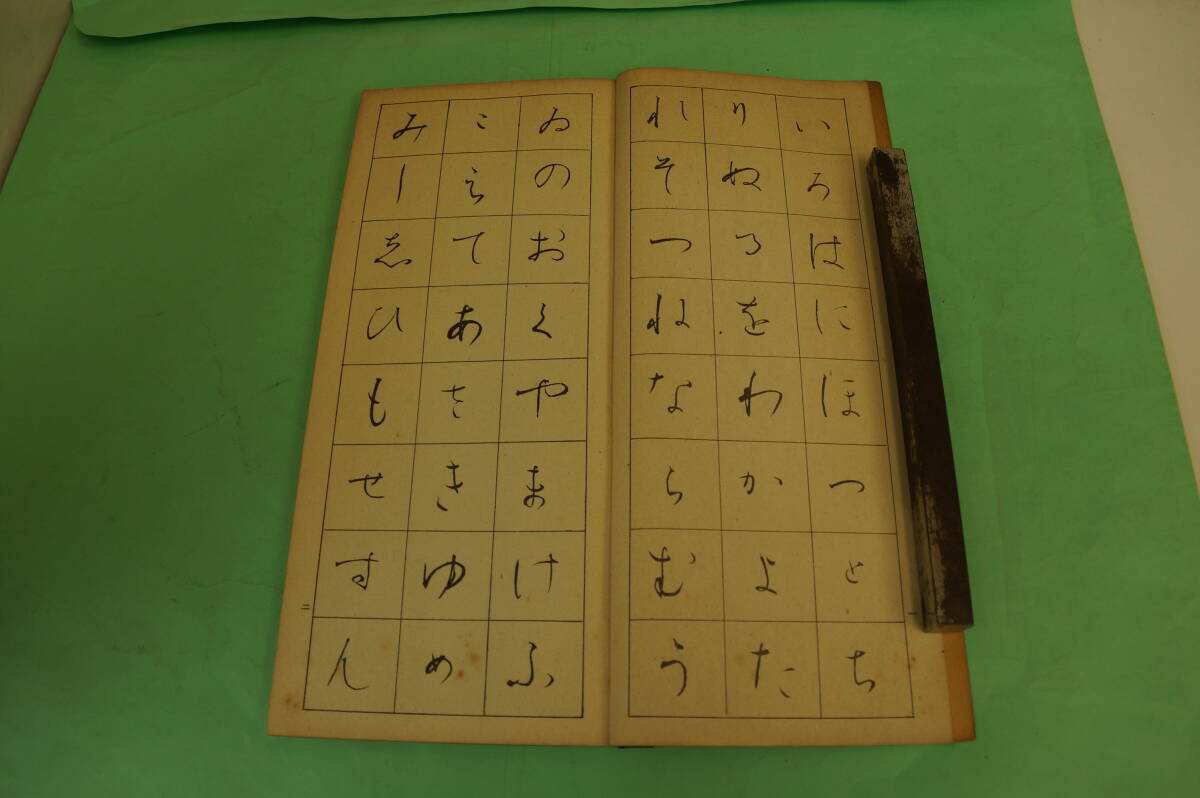 いろはにほへとち
りぬるをわかよた
れそつねならむう
一
ゐのおくやまけふ
こえてあさきゆめ
みしゑひもせすん
二